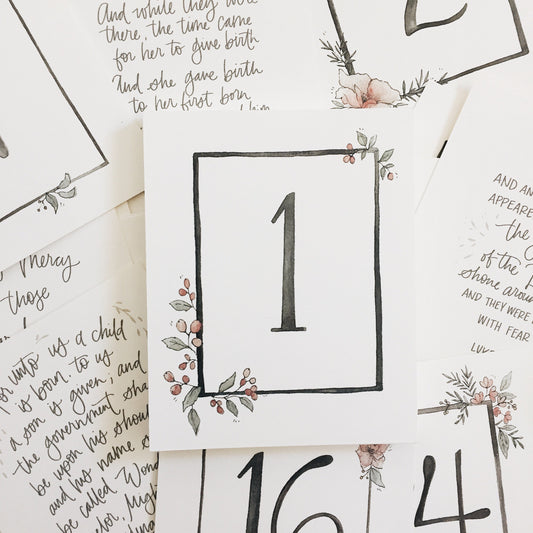 And while they were
there, the time came
for her to give birth
And she gave birth
to her first born
him
2
1
Mercy
those
For unto us a child
is born to us
a son is given; and
the government sha
be upon his shou
and his name s
be called Wond
elor, Migh
AND AN
APPEARE
the
of the
shone arou
AND THEY WERE
WITH FEAR
LUKE
16
4